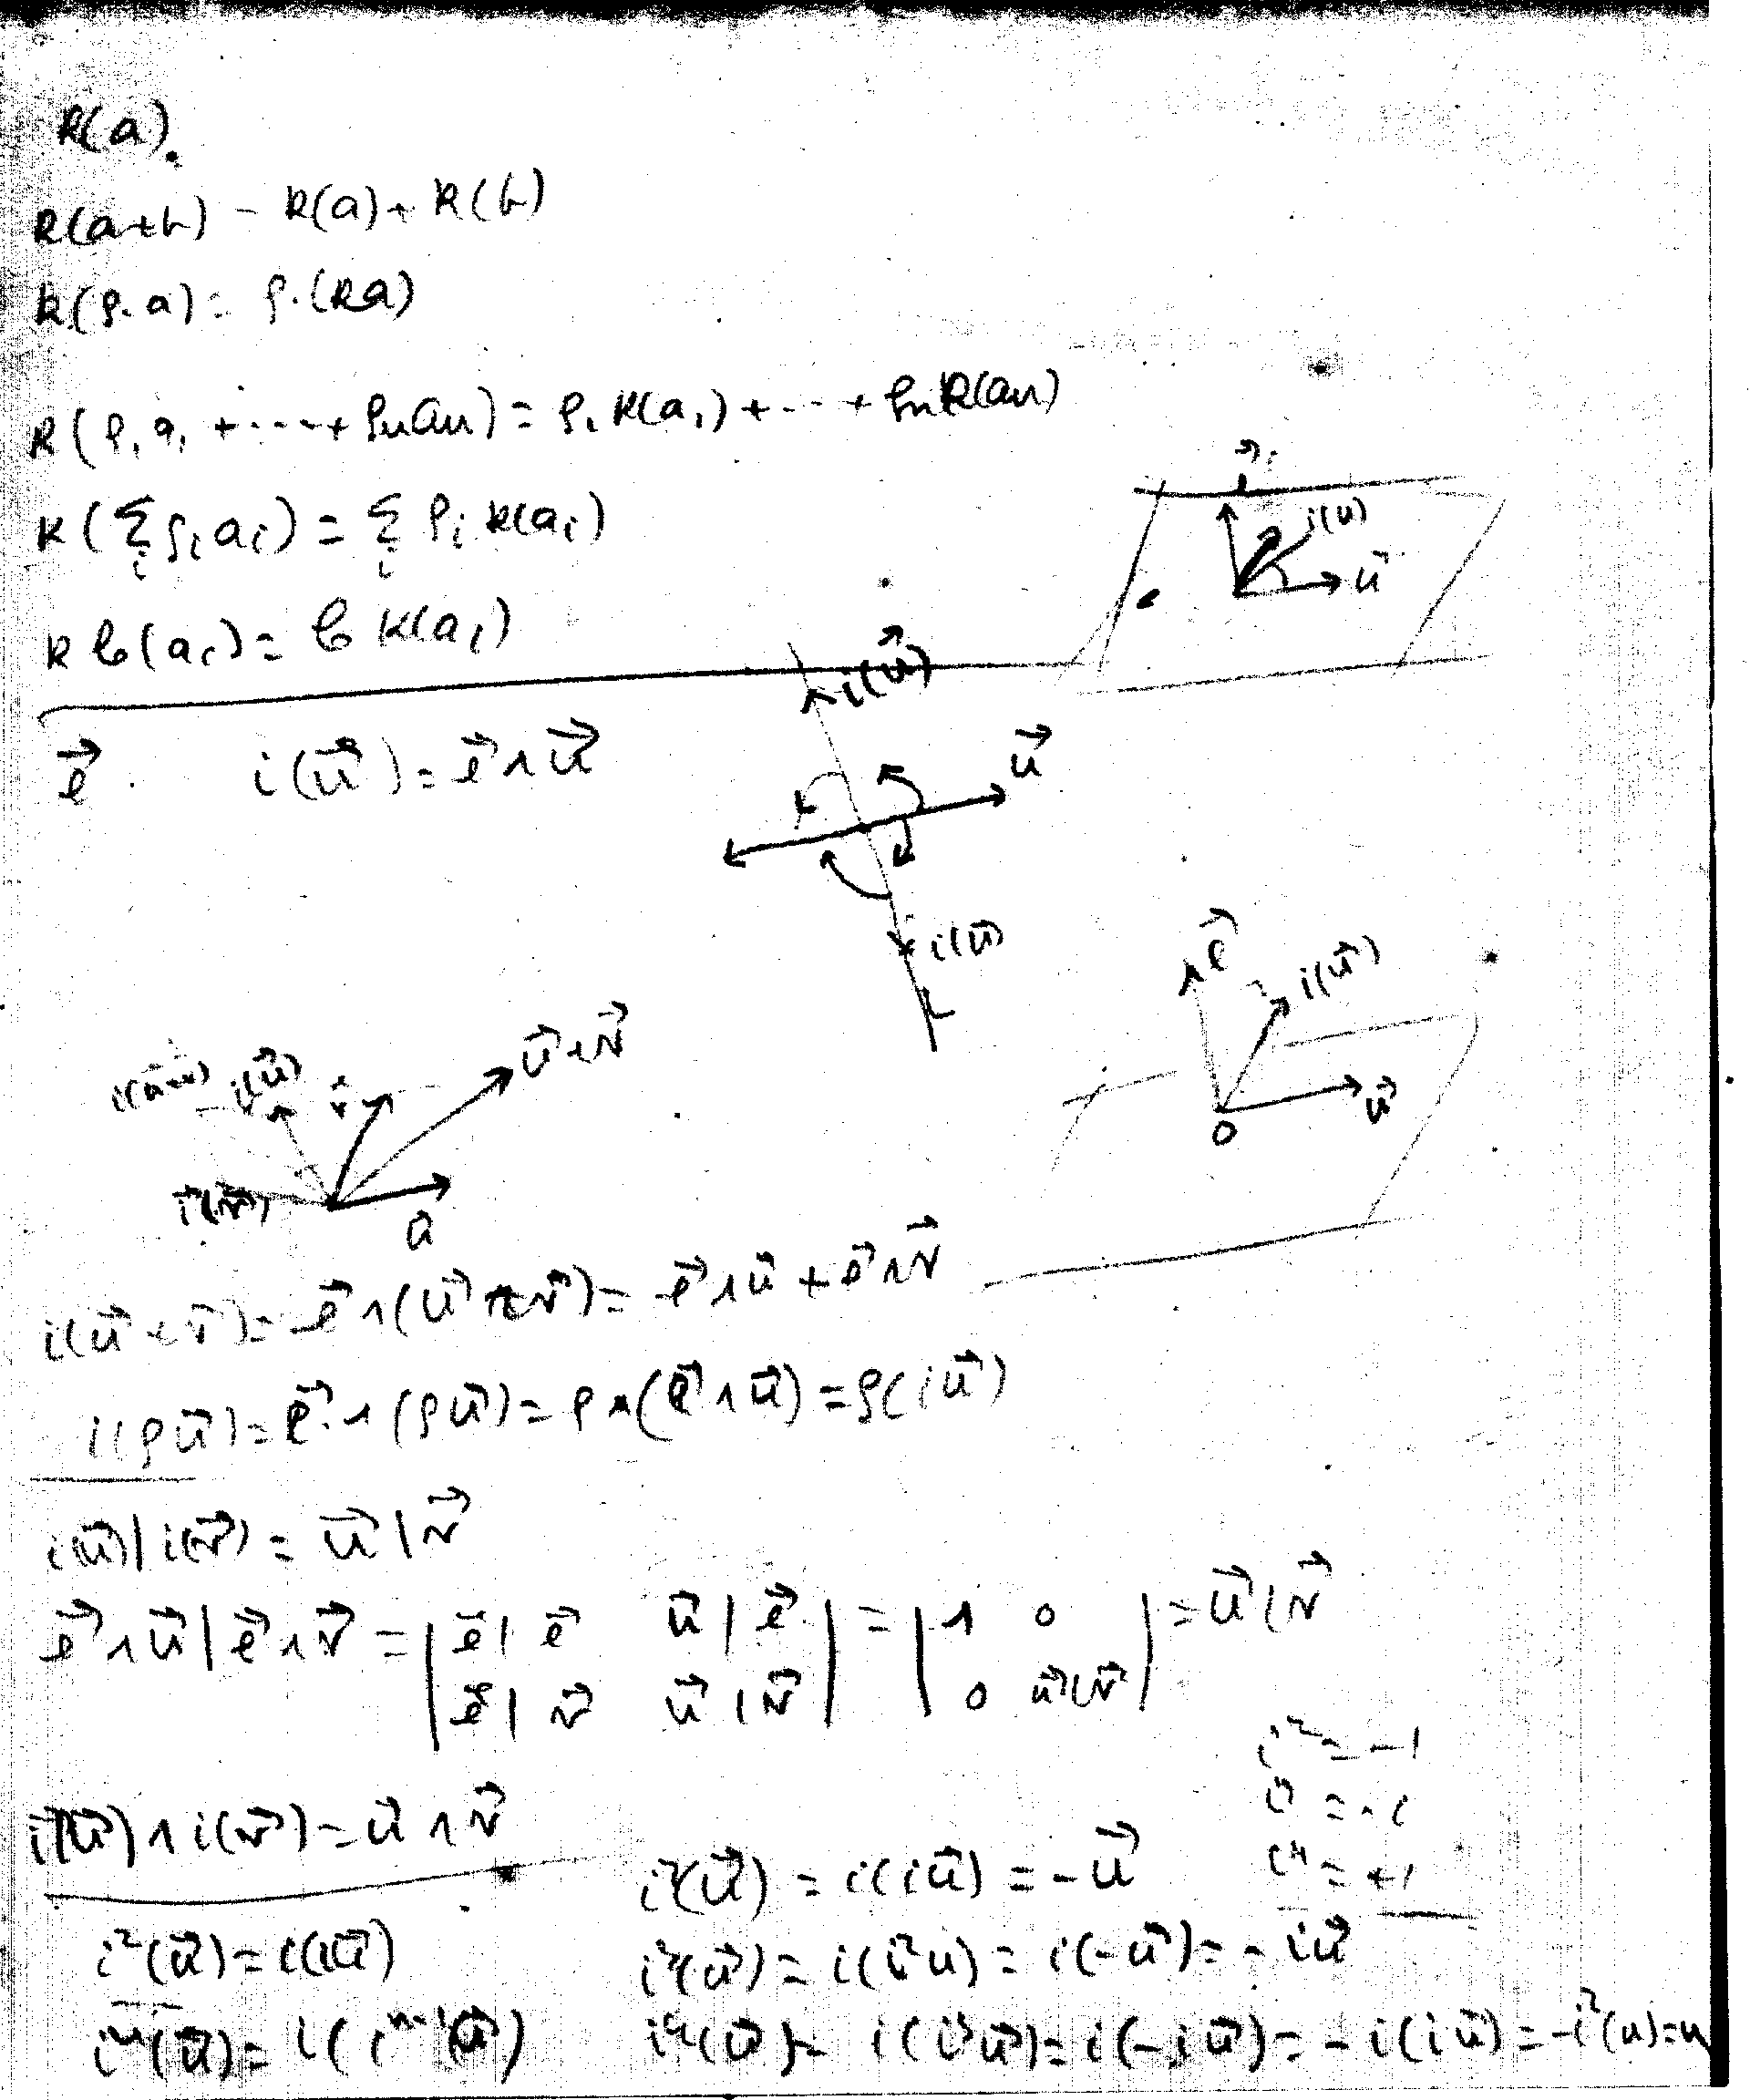 R(a).
R(a+b) = R(a) + R(b)
R(ρ·a) = ρ·(Ra)
R(ρ₁a₁ + ··· + ρₙaₙ) = ρ₁R(a₁) + ··· + ρₙR(aₙ)
R(Σᵢ ρᵢaᵢ) = Σᵢ ρᵢ R(aᵢ)
i(u)
u⃗
R b(aᵢ) = b R(aᵢ)
i(u⃗)
e⃗. i(u⃗) = e⃗ ∧ u⃗
u⃗
i(u⃗)
e⃗ i(u⃗)
u⃗
O
u⃗+v⃗
i(u⃗+v⃗) i(u⃗) v⃗
i(v⃗) u⃗
i(u⃗+v⃗) = e⃗ ∧ (u⃗+v⃗) = e⃗ ∧ u⃗ + e⃗ ∧ v⃗
i(ρu⃗) = e⃗ ∧ (ρu⃗) = ρ (e⃗ ∧ u⃗) = ρ(iu⃗)
i(u⃗) | i(v⃗) = u⃗ | v⃗
e⃗∧u⃗ | e⃗∧v⃗ = | e⃗|e⃗ u⃗|e⃗ | = | 1 0 | = u⃗|v⃗
| e⃗|v⃗ u⃗|v⃗ | | 0 u⃗|v⃗ |
i² = -1
i³ = -i
i⁴ = +1
i(u⃗) ∧ i(v⃗) = u⃗ ∧ v⃗
i²(u⃗) = i(iu⃗) = -u⃗
i²(u⃗) = i(iu⃗)
i³(u⃗) = i(i²u) = i(-u⃗) = -iu⃗
iⁿ(u⃗) = i(iⁿ⁻¹(u⃗))
i⁴(u⃗) = i(i³u⃗) = i(-iu⃗) = -i(iu⃗) = -i²(u) = u